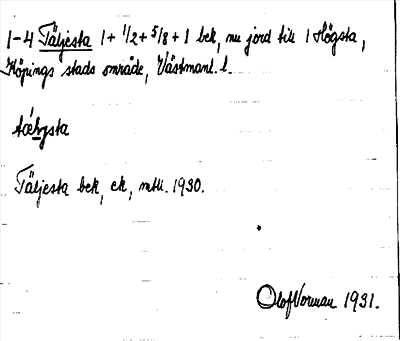 1-4 Täljesta 1 + 1/2 + 5/8 + 1 bek, nu jord till 1 Högsta,
Köpings stads område, Västmanl. l.
Täljesta bek, ek, mtll. 1930.
Olof Norman 1931.